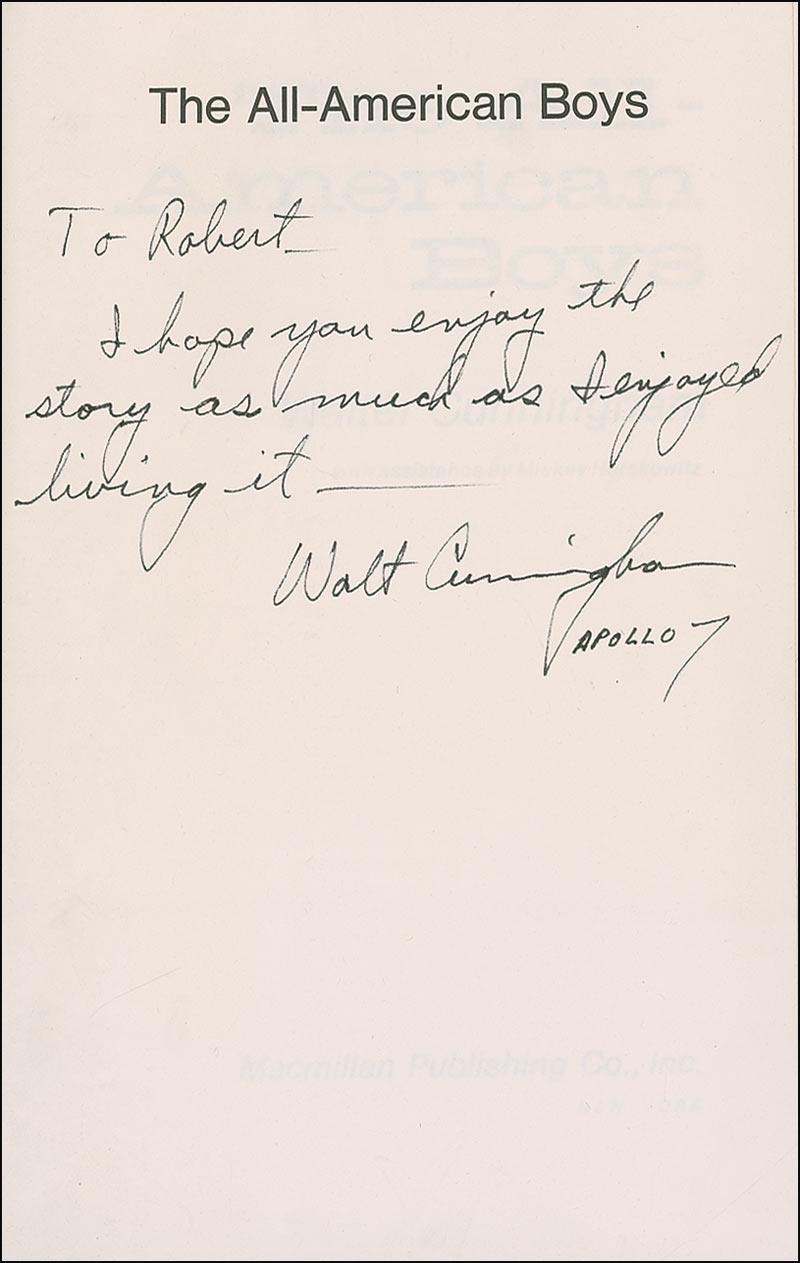 The All-American Boys
To Robert—
I hope you enjoy the
story as much as I enjoyed
living it —
Walt Cunningham
APOLLO 7
American
Boys
Walter Cunningham
with assistance by Mickey Herskowitz
Macmillan Publishing Co., Inc.
NEW YORK